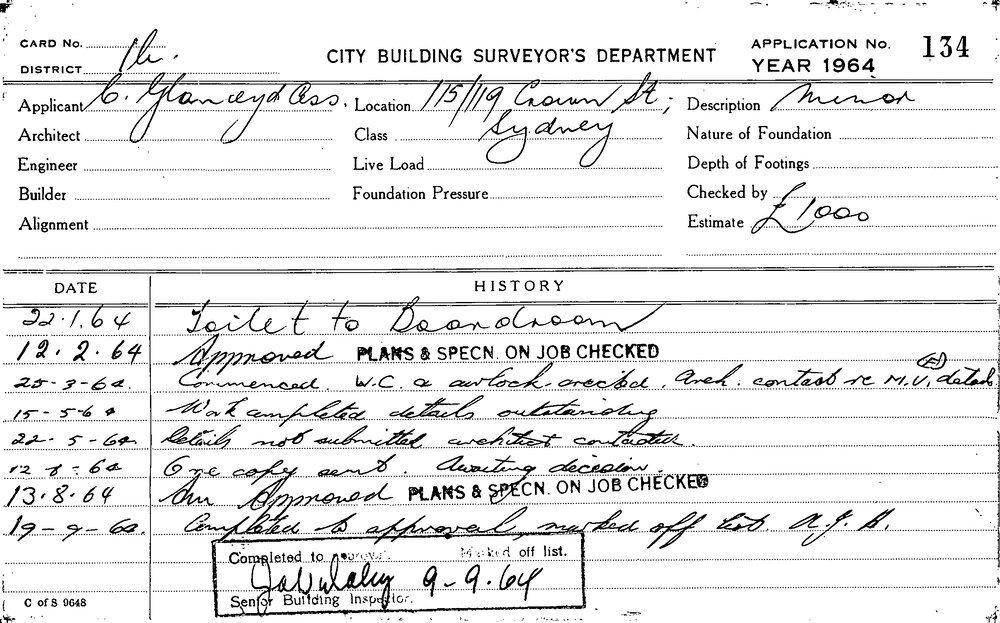 CARD No.
CITY BUILDING SURVEYOR'S DEPARTMENT
APPLICATION No. 134
DISTRICT
YEAR 1964
Applicant C. Glancey & Ass. Location 115/119 Crown St, Description Minor
Architect Class Sydney Nature of Foundation
Engineer Live Load Depth of Footings
Builder Foundation Pressure Checked by
Alignment Estimate £1000
DATE HISTORY
22.1.64 Toilet to Boardroom
12.2.64 Approved PLANS & SPECN. ON JOB CHECKED
25-3-64. Commenced. W.C. & airlock erected. Arch. contact re M.V. details
15-5-64 Work completed details outstanding
22-5-64. Details not submitted architect contacted.
12-8-64 One copy sent. Awaiting decision.
13.8.64 Approved PLANS & SPECN. ON JOB CHECKED
19-9-64. Completed to approval, marked off list.
Completed to approval. Marked off list.
9-9.64
Senior Building Inspector.
C of S 9648